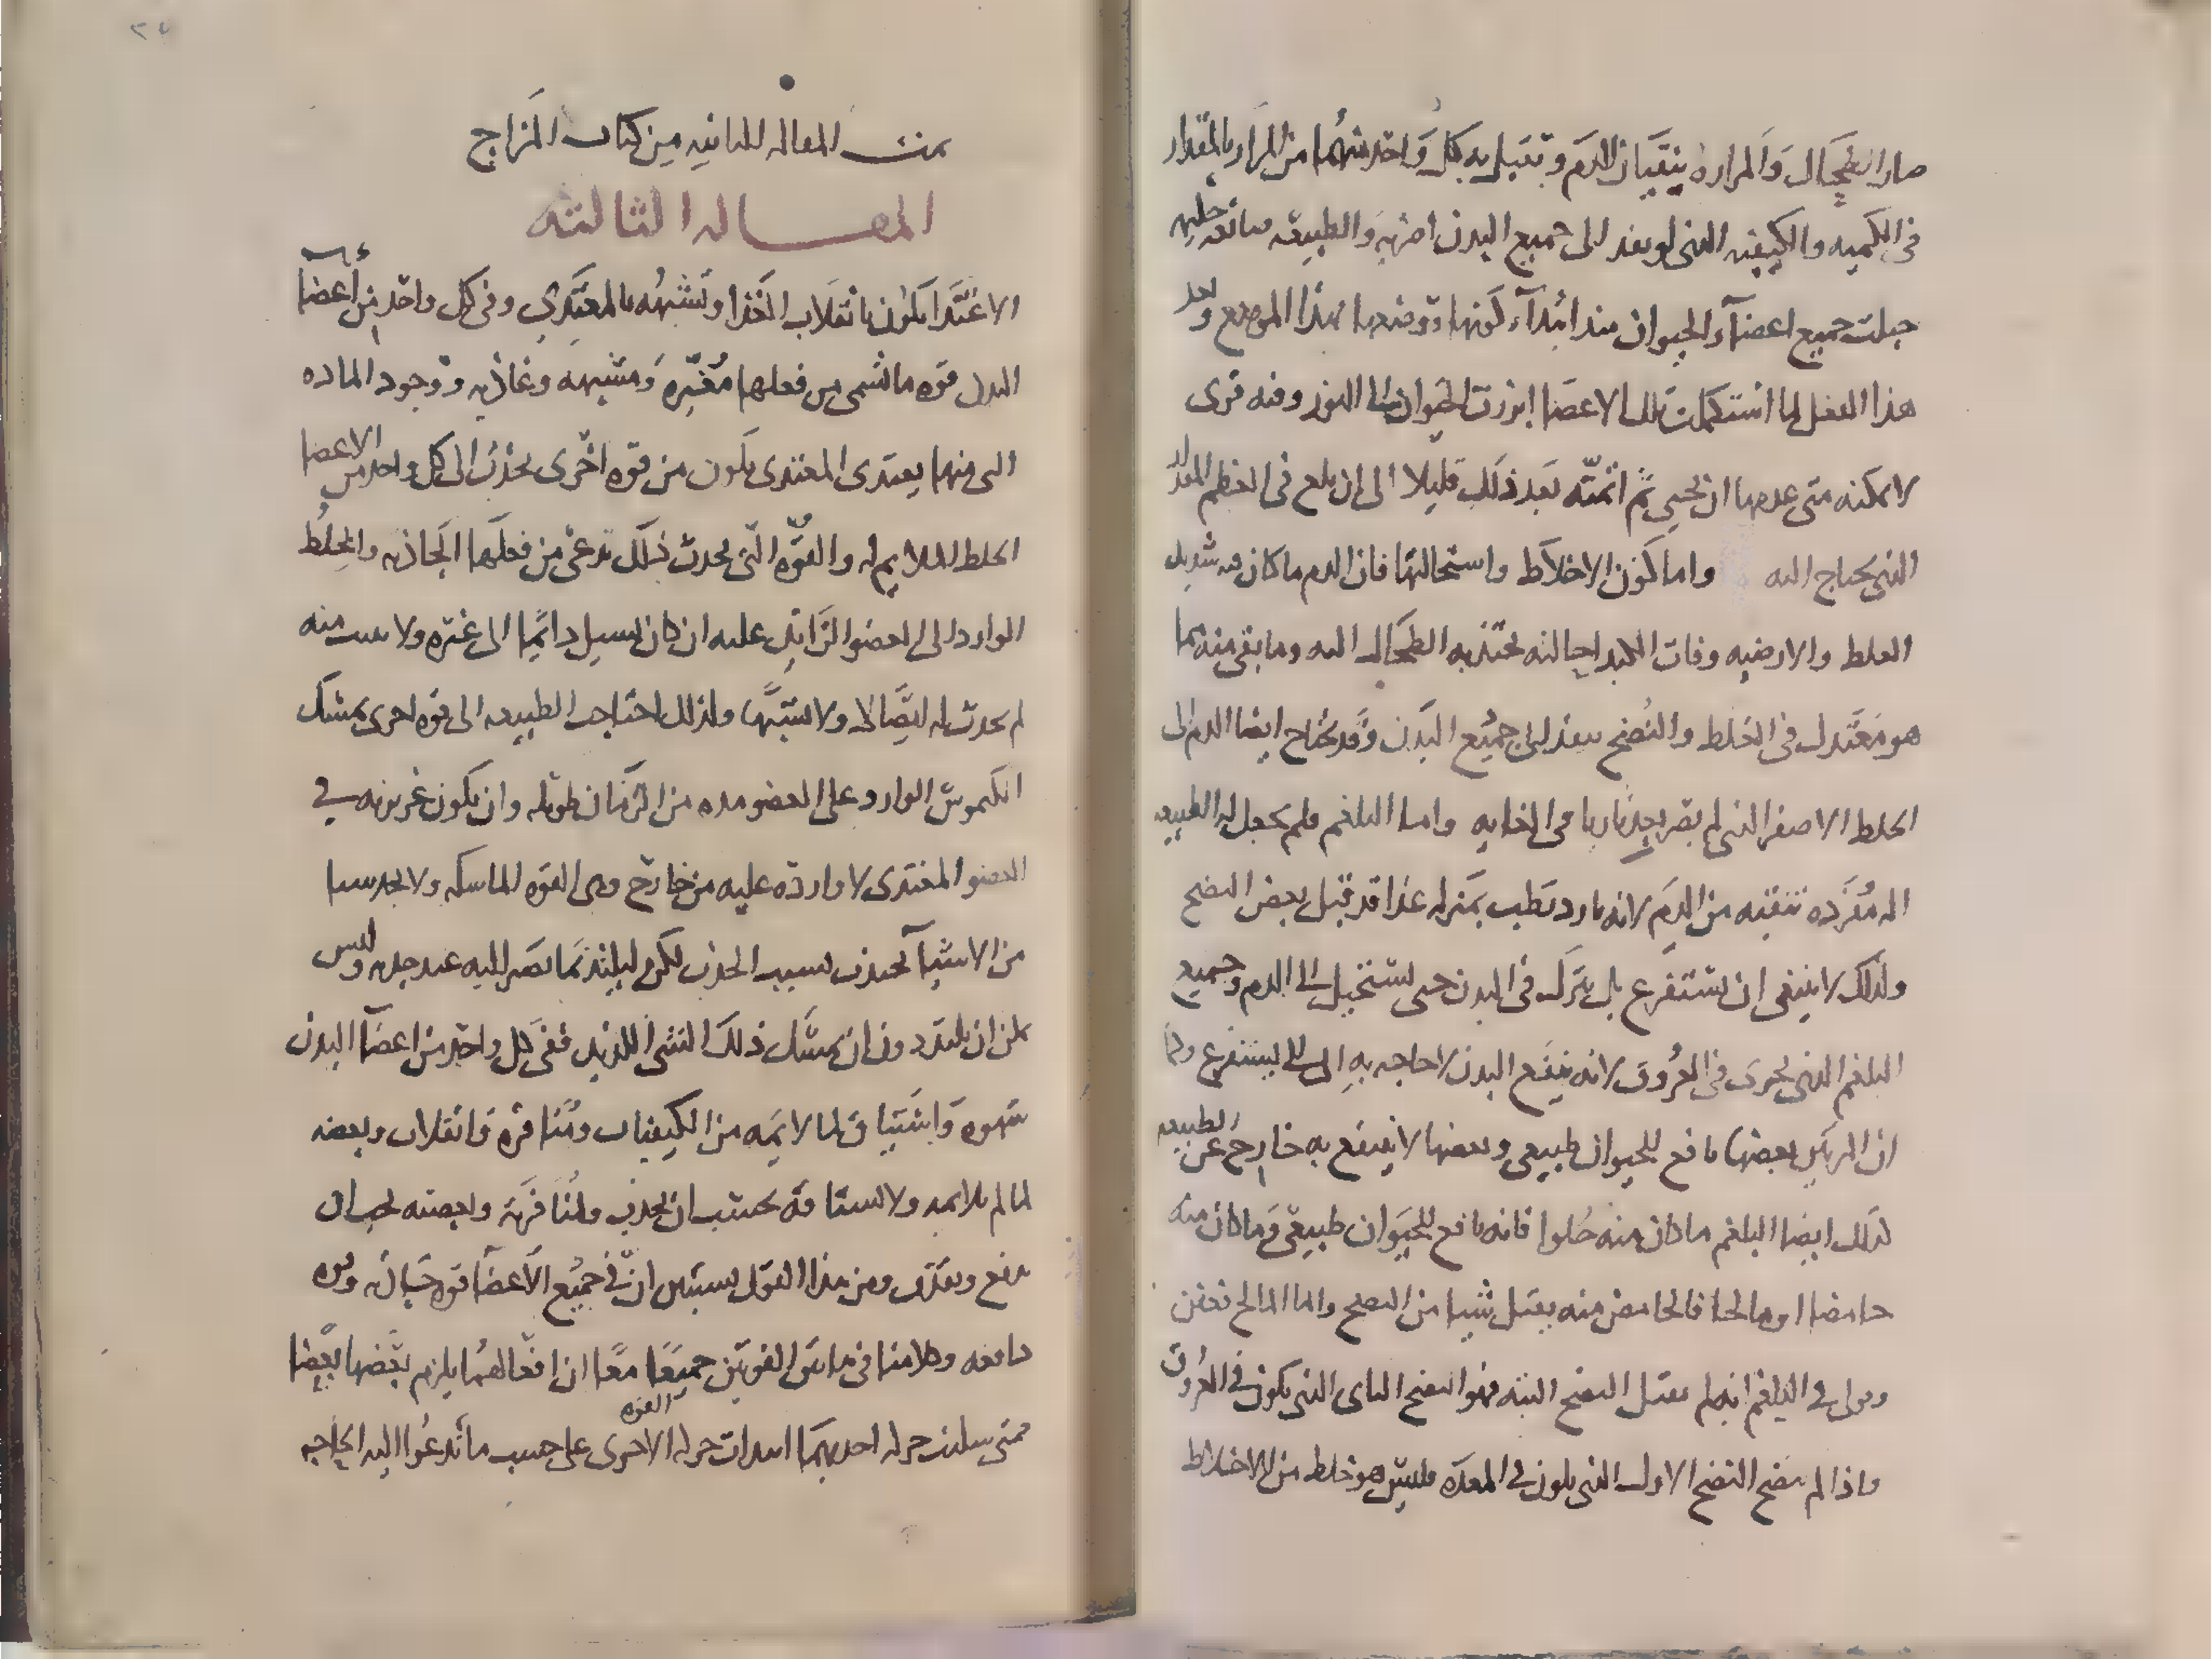 صار الطحال والمراره ينقيان الدم وتقبل به كل واحد منهما من المرار بالمقدار
في الكميه والكيفيه الذى لو نفذ الى جميع البدن اضر به والطبيعه
جبلت جميع اعضآء الحيوان منذ ابتدآء كونها ووضعها بهذا الموضع وبعد
هذا الفعل لما استكملت تلك الاعضا ابرزت الحيوان الى النور وفيه قوى
لا يمكنه متى عدمها ان يحيى ثم انمته بعد ذلك قليلا الى ان بلغ في العظم المقدار
الذى يحتاج اليه واما كون الاخلاط واستحالتها فان الدم ما كان منه شديد
الغلظ والارضيه وفات الكبد احالته يجتذبه الطحال اليه وما بقى منه مما
هو معتدل في الغلظ والنضج ينفذ الى جميع البدن وقد يحتاج ايضا الدم الى
الخلط الاصفر الذى لم يصر بعد ناريا في الغايه واما البلغم فلم يجعل له الطبيعه
اله مفرده تنقيه من الدم لانه بارد رطب بمنزله غذا قد قبل بعض النضج
ولذلك لا ينبغى ان يستفرغ بل يترك في البدن حتى يستحيل الى الدم وجميع
البلغم الذى يجرى في العروق لانه ينفع البدن لا حاجه به الى ان يستفرغ وكما
ان المرتين بعضها نافع للحيوان طبيعى وبعضها لا ينتفع به خارج عن الطبيعه
كذلك ايضا البلغم ما كان منه حلوا فانه نافع للحيوان طبيعى وما كان منه
حامضا او مالحا فالحامض منه يقبل شيا من النضج واما المالح تعفن
وقولى في البلغم انه لم يقبل النضج البته فهو النضج الثانى الذى يكون في العروق
واذا لم ينضج النضج الاول الذى يكون في المعده فليس هو خلط من الاخلاط
تمت المقاله الثانيه من كتاب المزاج
المقاله الثالثه
الاغتذا يكون بانقلاب الغذا وتشبهه بالمغتذى وفى كل واحد من أعضا
البدن قوه ما تسمى من فعلها مغيره ومشبهه وغاذيه ووجود الماده
التى منها يغتذى المغتذى يكون من قوه اخرى تجذب الى كل واحد من الاعضا
الخلط الملايم له والقوه التى تحدث ذلك تدعى من فعلها الجاذبه والخلط
الوارد الى العضو الزايد عليه ان كان يسيل دايما الى غيره ولا يثبت منه
لم يحدث له اتصالا ولا تشبها ولذلك احتاجت الطبيعه الى قوه اخرى تمسك
الكيموس الوارد على العضو مده من الزمان طويله وان يكون غريزيه في
العضو المغتذى لا وارده عليه من خارج وهى القوه الماسكه ولا نجد سيا
من الاشيآ يجتذب بسبب الجذب لكن ليلتذ بما يصير اليه عند جذبه وليس
يمكن ان يلتذ دون ان يمسك ذلك الشى اللذيذ ففى كل واحد من اعضآ البدن
شهوه واشتياق لما لايمه من الكيفيات ومنافره وانقلاب وبغضه
لما لم يلايمه ولاشتياقه يجب ان يجذب ولمنافرته وابغضته يجب ان
يدفع ويقذف ومن هذا القول يستبين ان في جميع الاعضآ قوه جذابه وقوه
دافعه وكلامنا في هاتين القوتين جميعا معا ان افعالهما يلزم بعضها بعضا
فمتى سكنت حركه احديهما ابتدات حركه القوه الاخرى على حسب ما تدعوا اليه الحاجه